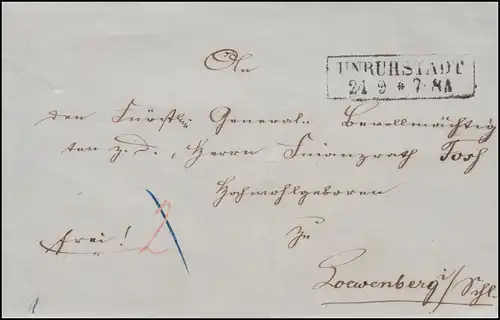 UNRUHSTADT
21 9 * 7-8A
An
den Fürstl. General-Bevollmächtig
ten p. d., Herrn Finanzrath
Hochwohlgeboren
frei! 2
zu
Loewenberg i/Schl.